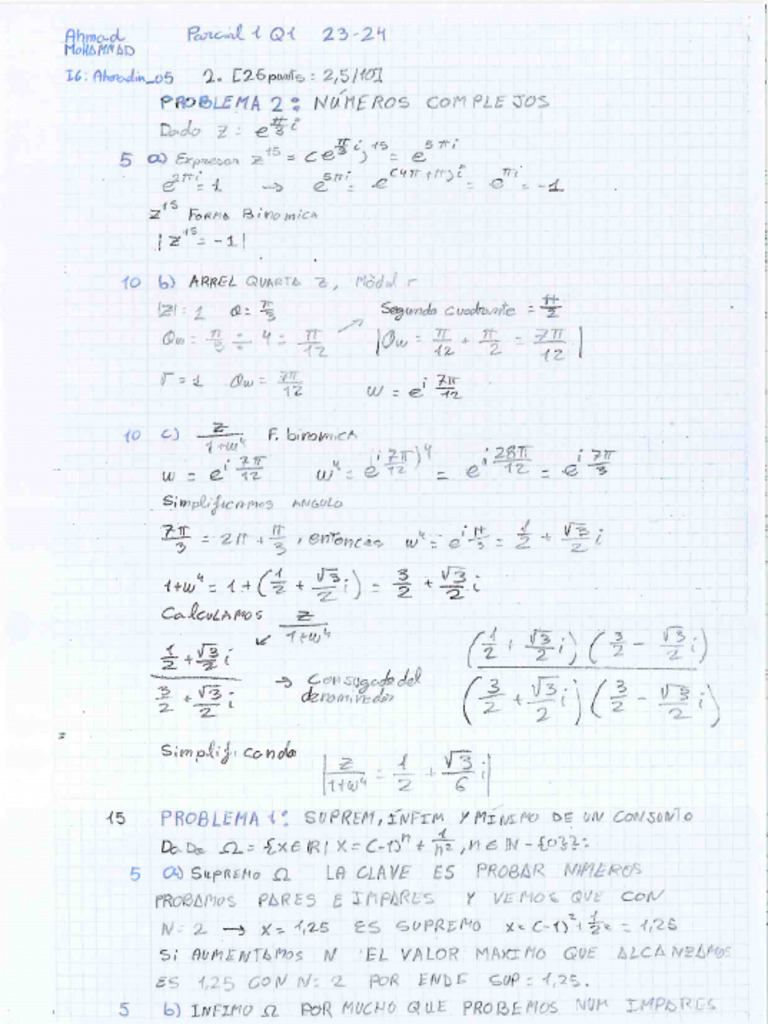 Ahmad Parcial 1 Q1 23-24
MOHAMMAD
I6: Ahmadin_05 2. [25 points: 2,5/10]
PROBLEMA 2: NÚMEROS COMPLEJOS
Dado z: e^{π/3 i}
5 a) Expresar z^{15} = (e^{π/3 i})^{15} = e^{5πi}
e^{2πi} = 1 → e^{5πi} = e^{(4π+π)i} = e^{πi} = -1
z^{15} FORMA BINOMICA
|z^{15} = -1|
10 b) ARREL QUARTA z, Mòdul r
|z|: 1 θ = π/3 Segundo cuadrante = π/2
θw = π/3 ÷ 4 = π/12 ↗ |θw = π/12 + π/2 = 7π/12|
r = 1 θw = 7π/12 w = e^{i 7π/12}
10 c) z/(1+w⁴) F. binomica
w = e^{i 7π/12} w⁴ = (e^{i 7π/12})⁴ = e^{i 28π/12} = e^{i 7π/3}
Simplificamos ANGULO
7π/3 = 2π + π/3, entonces w⁴ = e^{i π/3} = 1/2 + √3/2 i
1+w⁴ = 1 + (1/2 + √3/2 i) = 3/2 + √3/2 i
Calculamos z/(1+w⁴)
(1/2 + √3/2 i)/(3/2 + √3/2 i) → Conjugado del denominador ((1/2 + √3/2 i)(3/2 - √3/2 i))/((3/2 + √3/2 i)(3/2 - √3/2 i))
Simplificando |z/(1+w⁴) = 1/2 + √3/6 i|
15 PROBLEMA 1: SUPREM, ÍNFIM Y MÍNIMO DE UN CONJUNTO
DADO Ω = {X ∈ ℝ | X = (-1)^n + 1/n², n ∈ ℕ - {0}}:
5 a) SUPREMO Ω LA CLAVE ES PROBAR NUMEROS
PROBAMOS PARES E IMPARES Y VEMOS QUE CON
N = 2 → X = 1,25 ES SUPREMO X = (-1)² + 1/2² = 1,25
SI AUMENTAMOS N EL VALOR MAXIMO QUE ALCANZAMOS
ES 1,25 CON N = 2 POR ENDE SUP = 1,25.
5 b) INFIMO Ω POR MUCHO QUE PROBEMOS NUM IMPARES